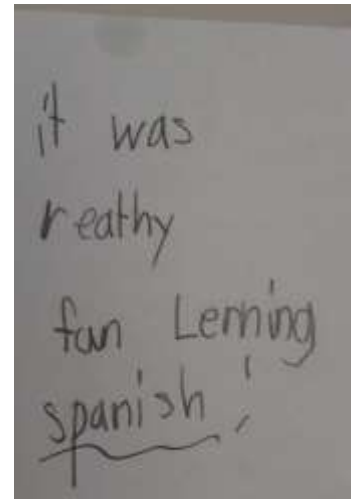 it was
reathy
fun Lerning
spanish!